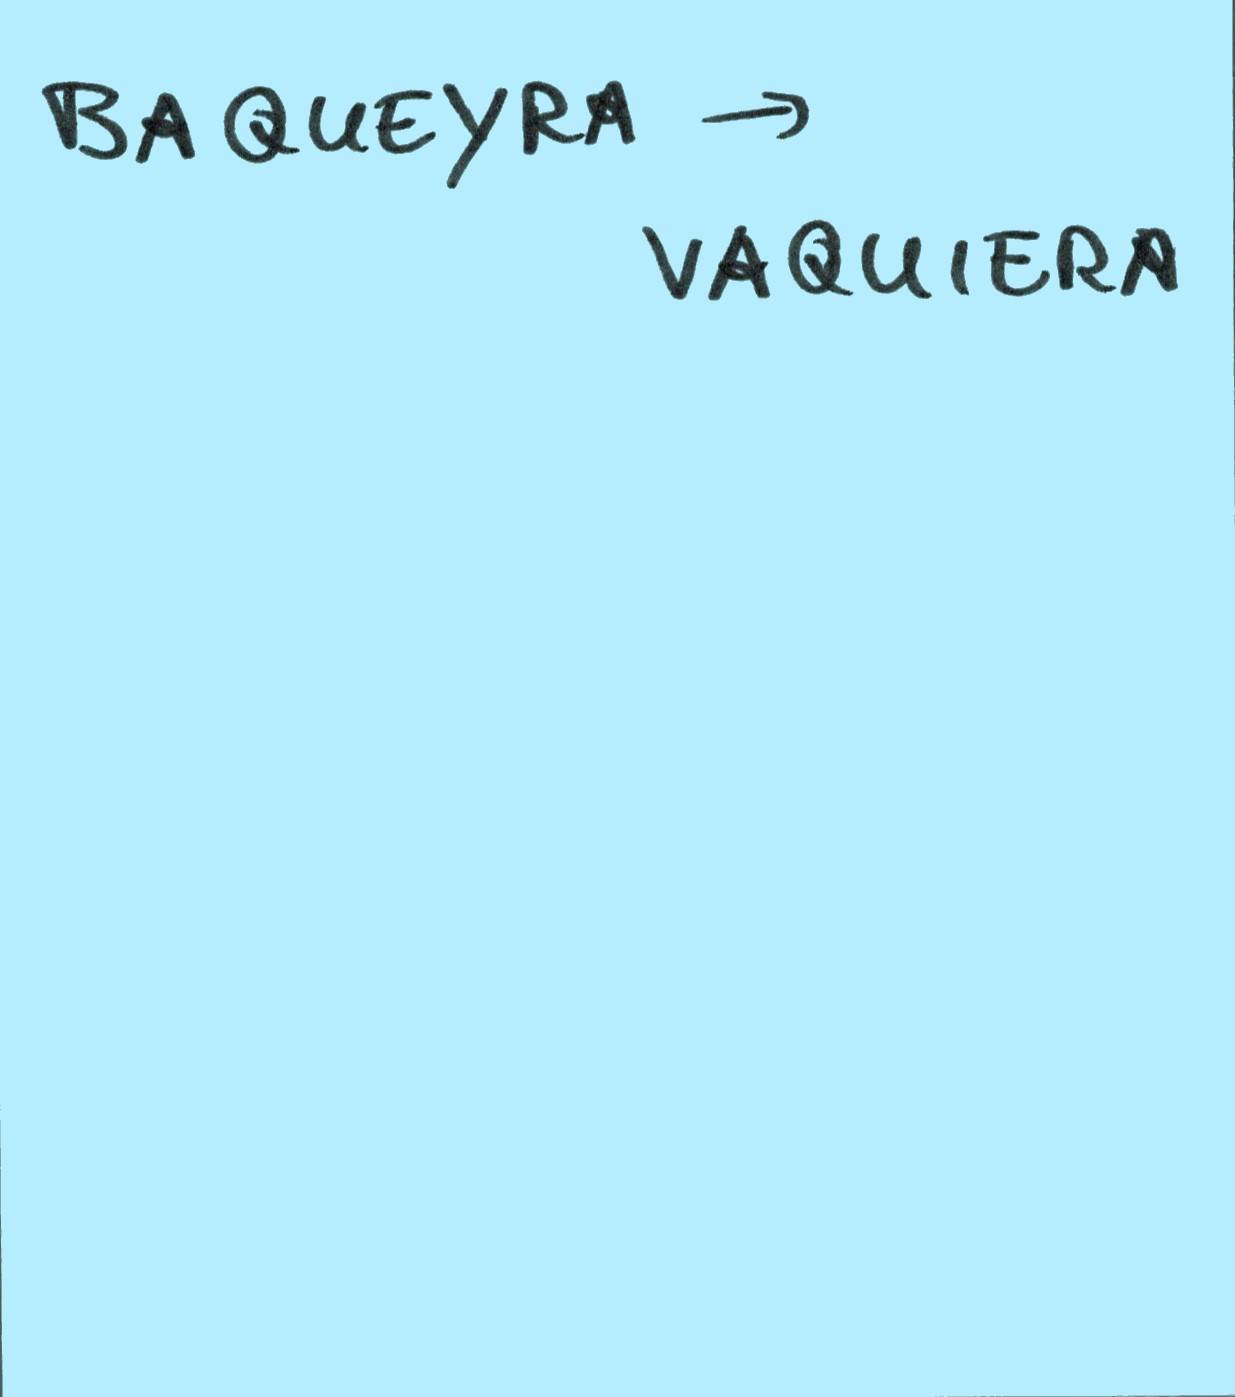 BAQUEYRA →
VAQUIERA